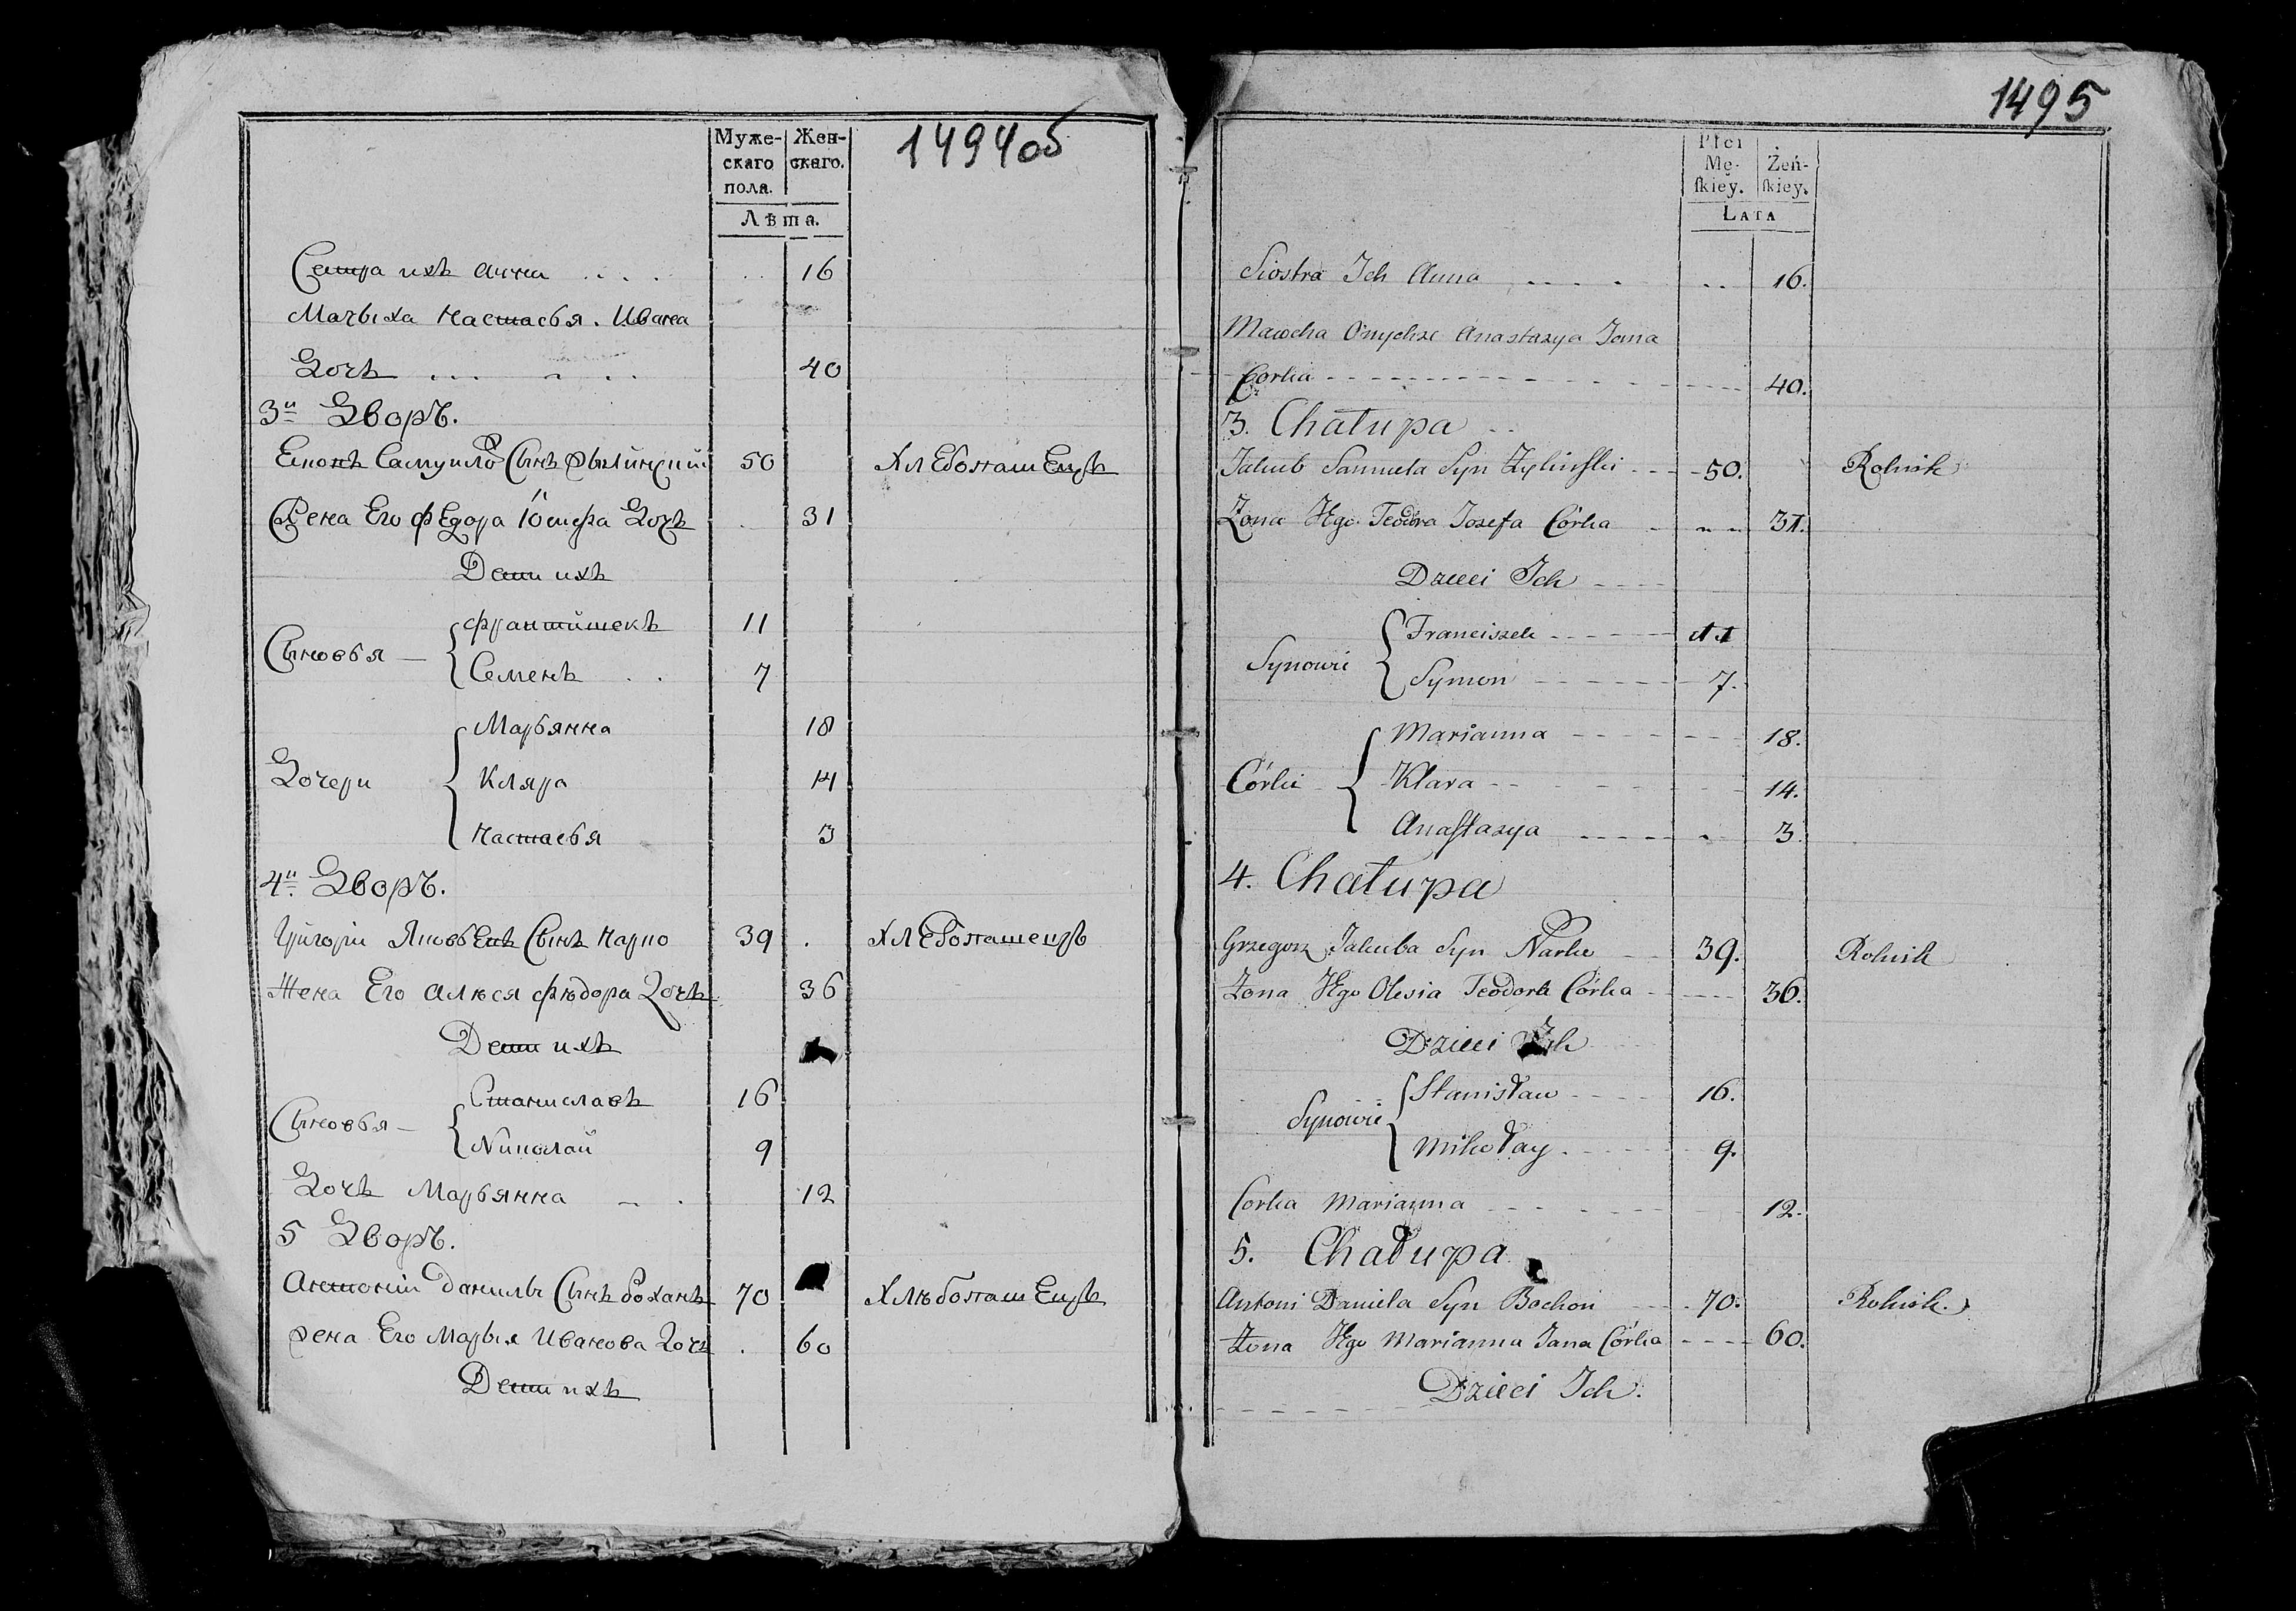 1494об
Муже-
скаго
пола.
Жен-
скаго.
Лѣта.
Сестра ихъ анна 16
Мачыха Настасья. Ивана
Дочь 40
3й Дворъ.
Самуила Сынъ 50 Хлебопашецъ
Жена Его Федора Іосифа Дочь 31
Дети ихъ
Сыновья
Франтишекъ 11
Семенъ 7
Дочери
Марьянна 18
Кляра 14
Настасья 3
4й Дворъ.
Григоріи Сынъ Нарко 39 Хлебопашецъ
Жена Его алюся Фѣдора Дочь 36
Дети ихъ
Сыновья
Станиславъ 16
Николай 9
Дочь Марьянна 12
5 Дворъ.
Антоній Данила Сынъ Боханъ 70 Хлѣбопашецъ
Жена Его Марья Иванова Дочь 60
Дети ихъ
1495
Płci
Mę-
ſkiey.
Żeń-
ſkiey.
LATA
Siostra Ich Anna 16.
Anastazya Jana
Corka 40.
3. Chałupa
Jakub Samuela Syn Żyliński 50. Rolnik
Żona Jego Teodora Josefa Córka 31.
Dzieci Ich
Synowie
Franciszek 11
Symon 7.
Córki
Marianna 18.
Klara 14.
Anaſtazya 3.
4. Chałupa
Grzegorz Jakuba Syn Narko 39. Rolnik
Żona Jego Olesia Teodora Córka 36.
Dzieci Ich
Synowie
Stanisław 16.
Mikołay 9.
Corka Marianna 12.
5. Chałupa
Antoni Daniela Syn Bochon 70. Rolnik.
Żona Jego Marianna Jana Córka 60.
Dzieci Ich.